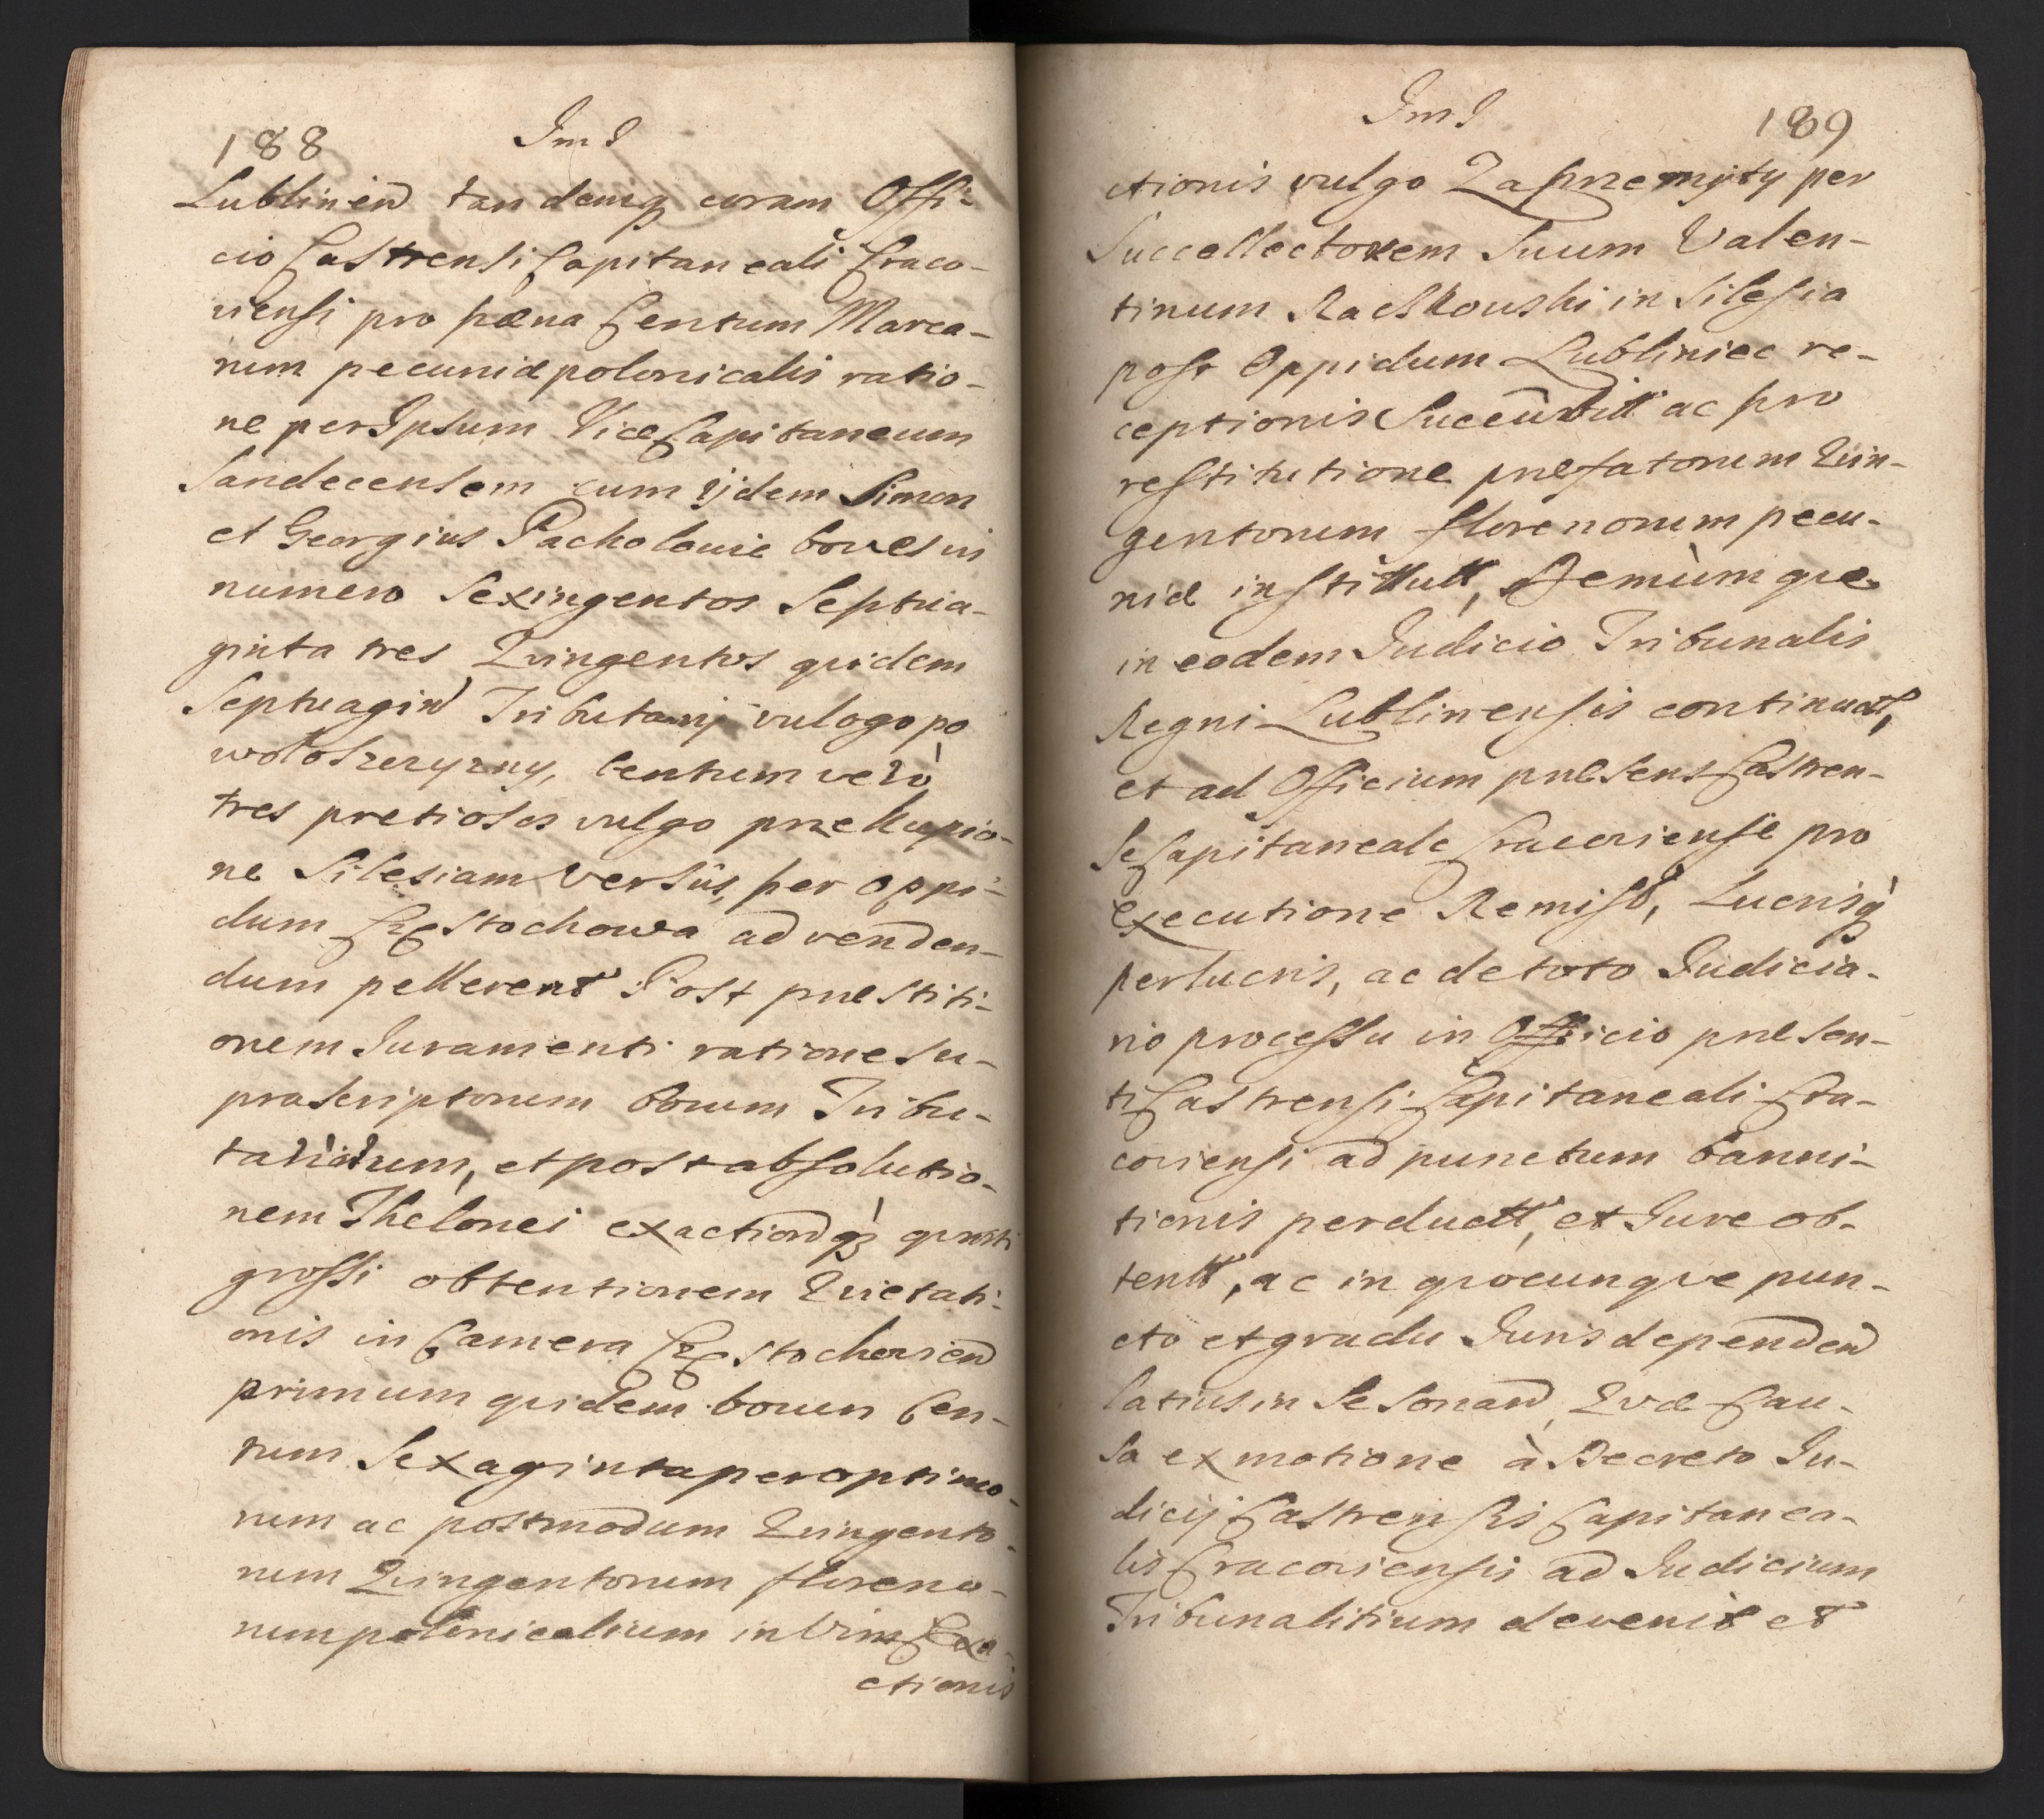 188 Jmſ
Lublinen tandemq coram Offi-
cio Castrensi Capitaneali Craco-
viensi pro pæna Centum Marca-
rum pecuniæ polonicalis ratio-
ne per Ipsum ViceCapitaneum
Sandecensem cum ijdem Simon
et Georgius Pacholowie boves in
numero Sexingentos Septua-
ginta tres Quingentos quidem
Septuagin Tributarij vulogo po
wołoszczyzny, Centum verò
tres pretiosos vulgo przekupio-
ne Silesiam Versûs, per Oppi-
dum Częstochowa ad venden-
dum pellerent Post præstiti-
onem Juramenti ratione su-
prascriptorum boum Tribu-
tariorum, et post absolutio-
nem Thelonei exactionq quarti
grossi obtentionem Quietati-
onis in Camera Częstochovien
primum quidem boum Cen-
tum Sexaginta per optimo-
rum ac postmodum Quingento-
rum Quingentorum floreno-
rum polonicalium in Vim Exa-
ctionis
Jmſ 189
ctionis vulgo Zaprzemyty per
Succollectorem Suum Valen-
tinum Raczkowski in Silesia
post Oppidum Lubliniec re-
ceptionis Succumbit ac pro
restitutione præfatorum Quin-
gentorum florenorum pecu-
niæ instituit, Demùmque
in eodem Judicio Tribunalis
Regni Lublinensis continuat,
et ad Officium præsens Castren-
se Capitaneale Cracoviense pro
executione Remiss, Lucrisq
perlucris, ac de toto Judicia-
rio processu in Officio præsen-
ti Castrensi Capitaneali Cra-
coviensi ad punctum banni-
tionis perduct, et Jure ob-
tent, ac in quocunque pun-
cto et gradu Juris dependen
latius in Se Sonan, Quæ Cau-
sa ex motione à Decreto Ju-
dicij Castrensis Capitanea-
lis Cracoviensis ad Judicium
Tribunalitium devenit et